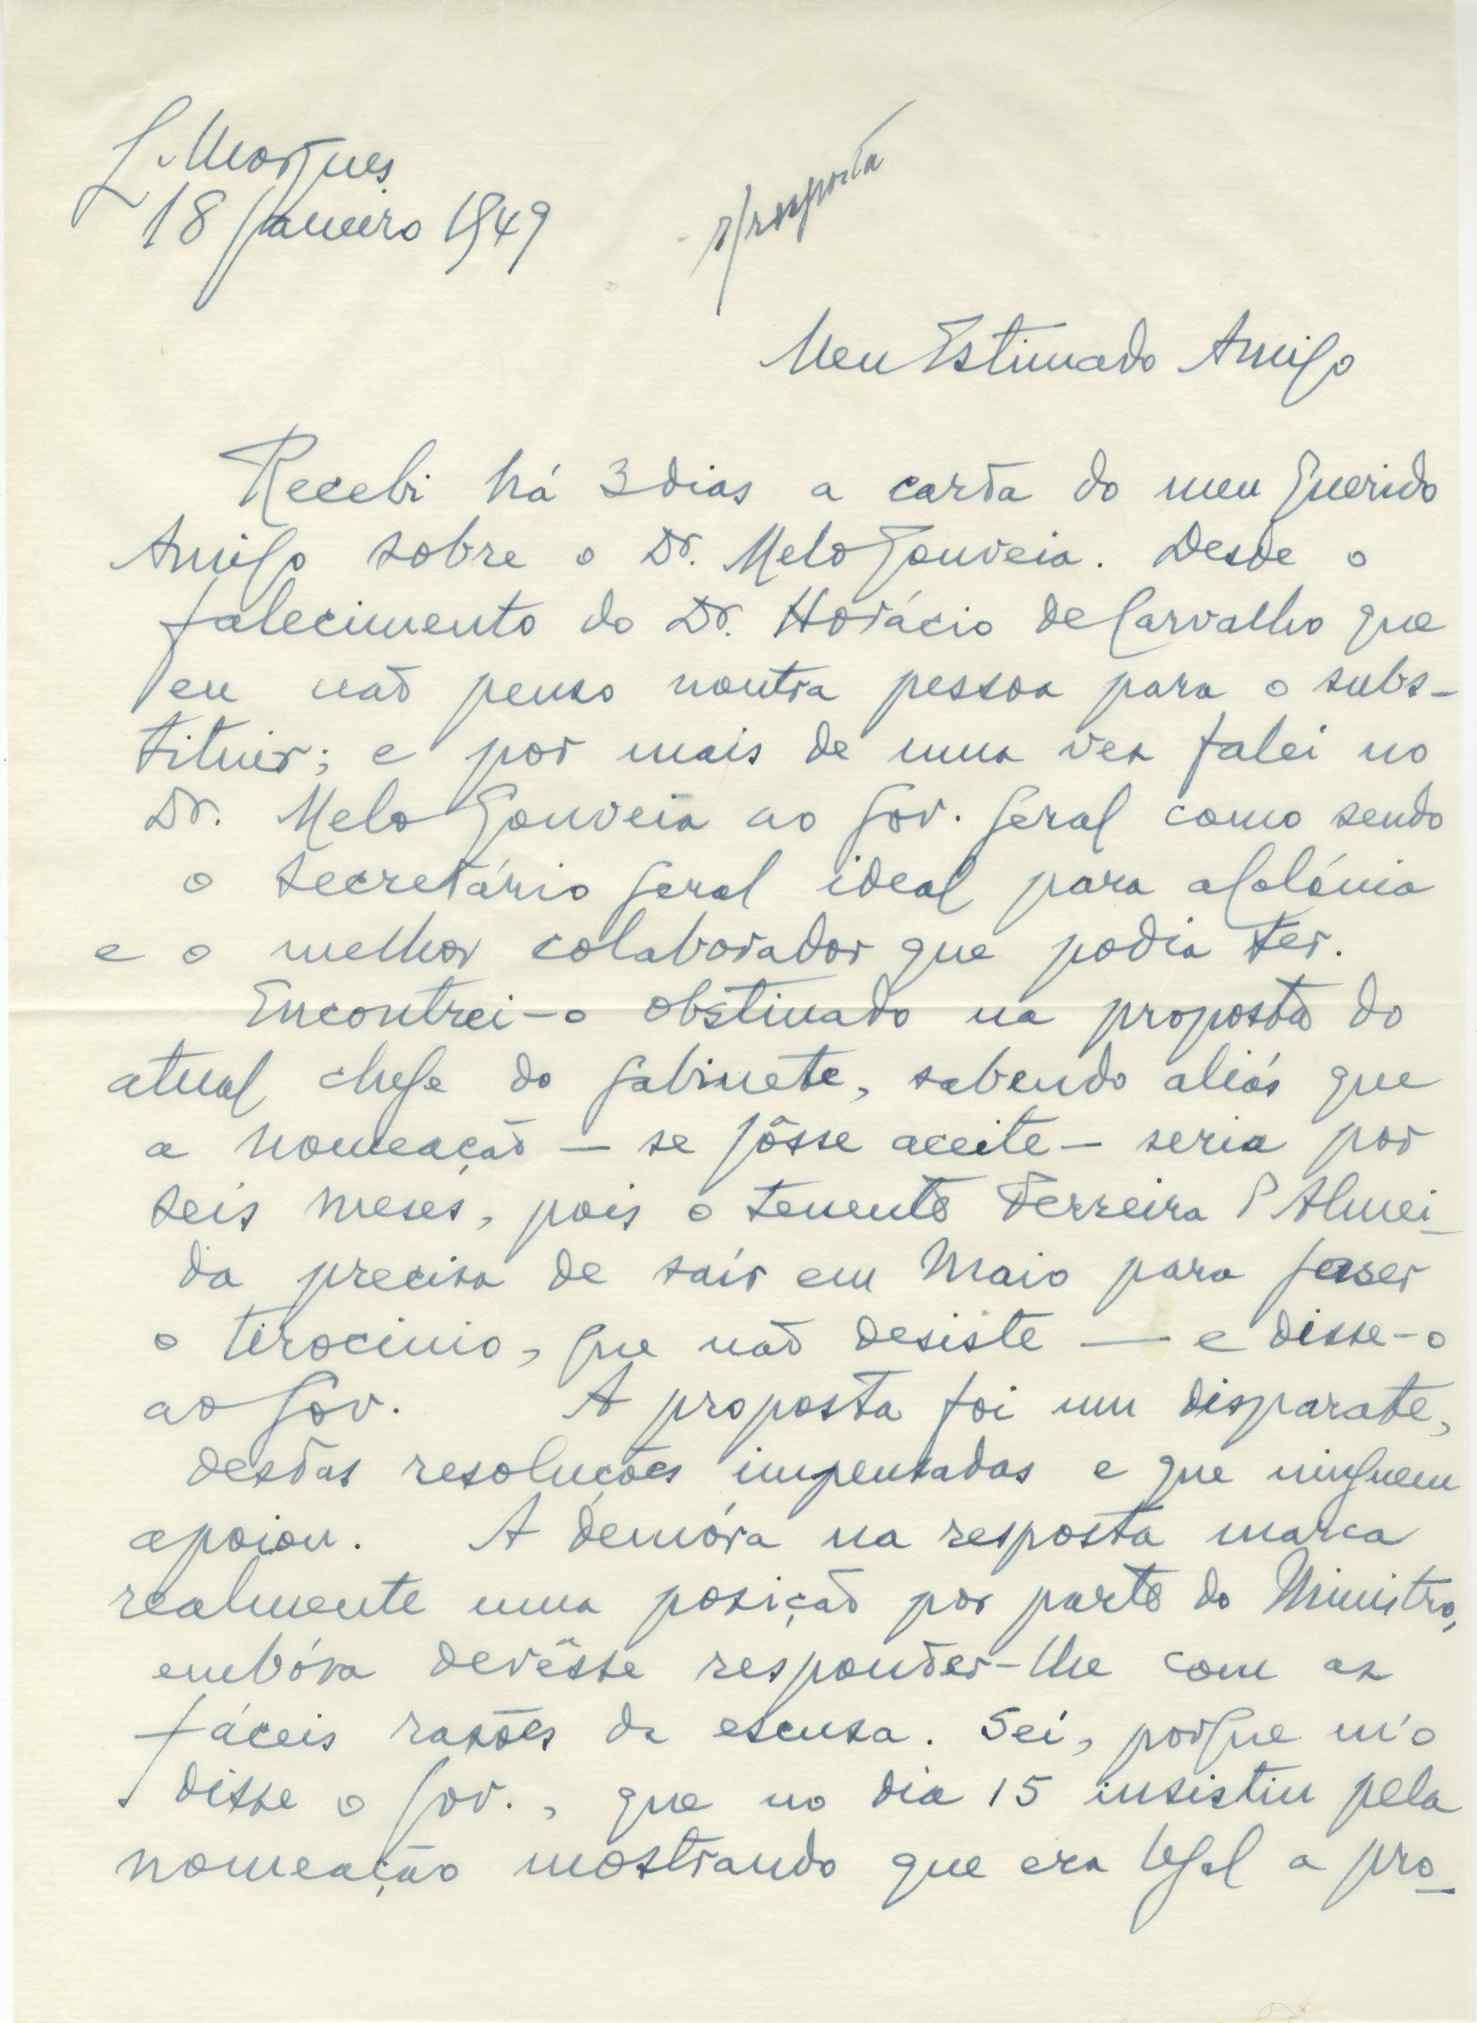 L. Marques
18 Janeiro 1949
s/resposta
Meu Estimado Amigo
Recebi há 3 dias a carta do meu Querido
Amigo sobre o Dr. Melo Gouveia. Desde o
falecimento do Dr. Horácio de Carvalho que
eu não penso noutra pessoa para o subs-
tituir; e por mais de uma vez falei no
Dr. Melo Gouveia ao Gov. Geral como sendo
o Secretário Geral ideal para a Colónia
e o melhor colaborador que podia ter.
Encontrei-o obstinado na proposta do
atual chefe do Gabinete, sabendo aliás que
a nomeação — se fôsse aceite — seria por
seis meses, pois o tenente Ferreira d'Almei-
da precisa de sair em Maio para fazer
o tirocinio, que não desiste — e disse-o
ao Gov. A proposta foi um disparate,
destas resoluções impensadas e que ninguem
apoiou. A demóra na resposta marca
realmente uma posição por parte do Ministro,
embóra devêsse responder-lhe com as
fáceis razões da escusa. Sei, porque m'o
disse o Gov., que no dia 15 insistiu pela
nomeação mostrando que era legal a pro-